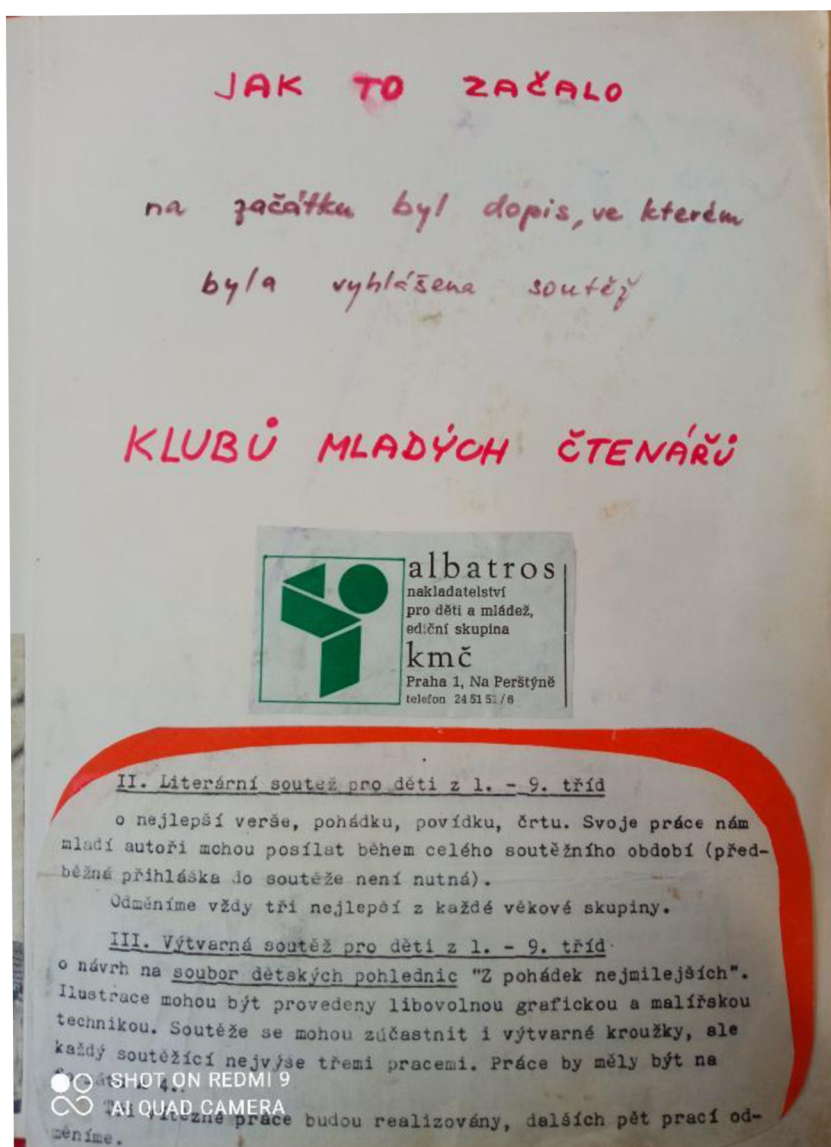 JAK TO ZAČALO
na začátku byl dopis, ve kterém
byla vyhlášena soutěž
KLUBŮ MLADÝCH ČTENÁŘŮ
albatros
nakladatelství
pro děti a mládež,
ediční skupina
kmč
Praha 1, Na Perštýně
telefon 24 51 51/6
II. Literární soutež pro děti z 1. - 9. tříd
o nejlepší verše, pohádku, povídku, črtu. Svoje práce nám
mladí autoři mohou posílat během celého soutěžního období (před-
běžná přihláška do soutěže není nutná).
Odměníme vždy tři nejlepší z každé věkové skupiny.
III. Výtvarná soutěž pro děti z 1. - 9. tříd
o návrh na soubor dětských pohlednic "Z pohádek nejmilejších".
Ilustrace mohou být provedeny libovolnou grafickou a malířskou
technikou. Soutěže se mohou zúčastnit i výtvarné kroužky, ale
každý soutěžící nejvýše třemi pracemi. Práce by měly být na
4.
SHOT ON REDMI 9
AI QUAD CAMERA
práce budou realizovány, dalších pět prací od-
měníme.